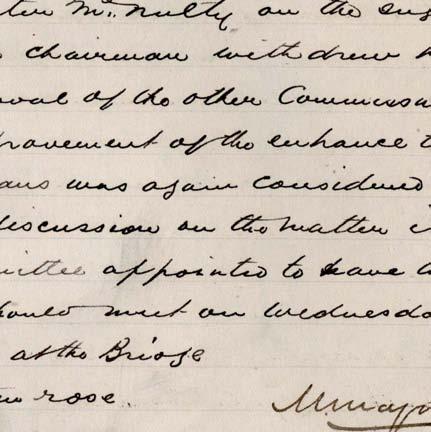 Mr. Nulty on the sug
chairman withdrew h
oval of the other Commissi
provement of the enhance t
ans was again considered
discussion on the matter i
ittee appointed to have
hould meet on Wednesda
at the Bridge
rose.